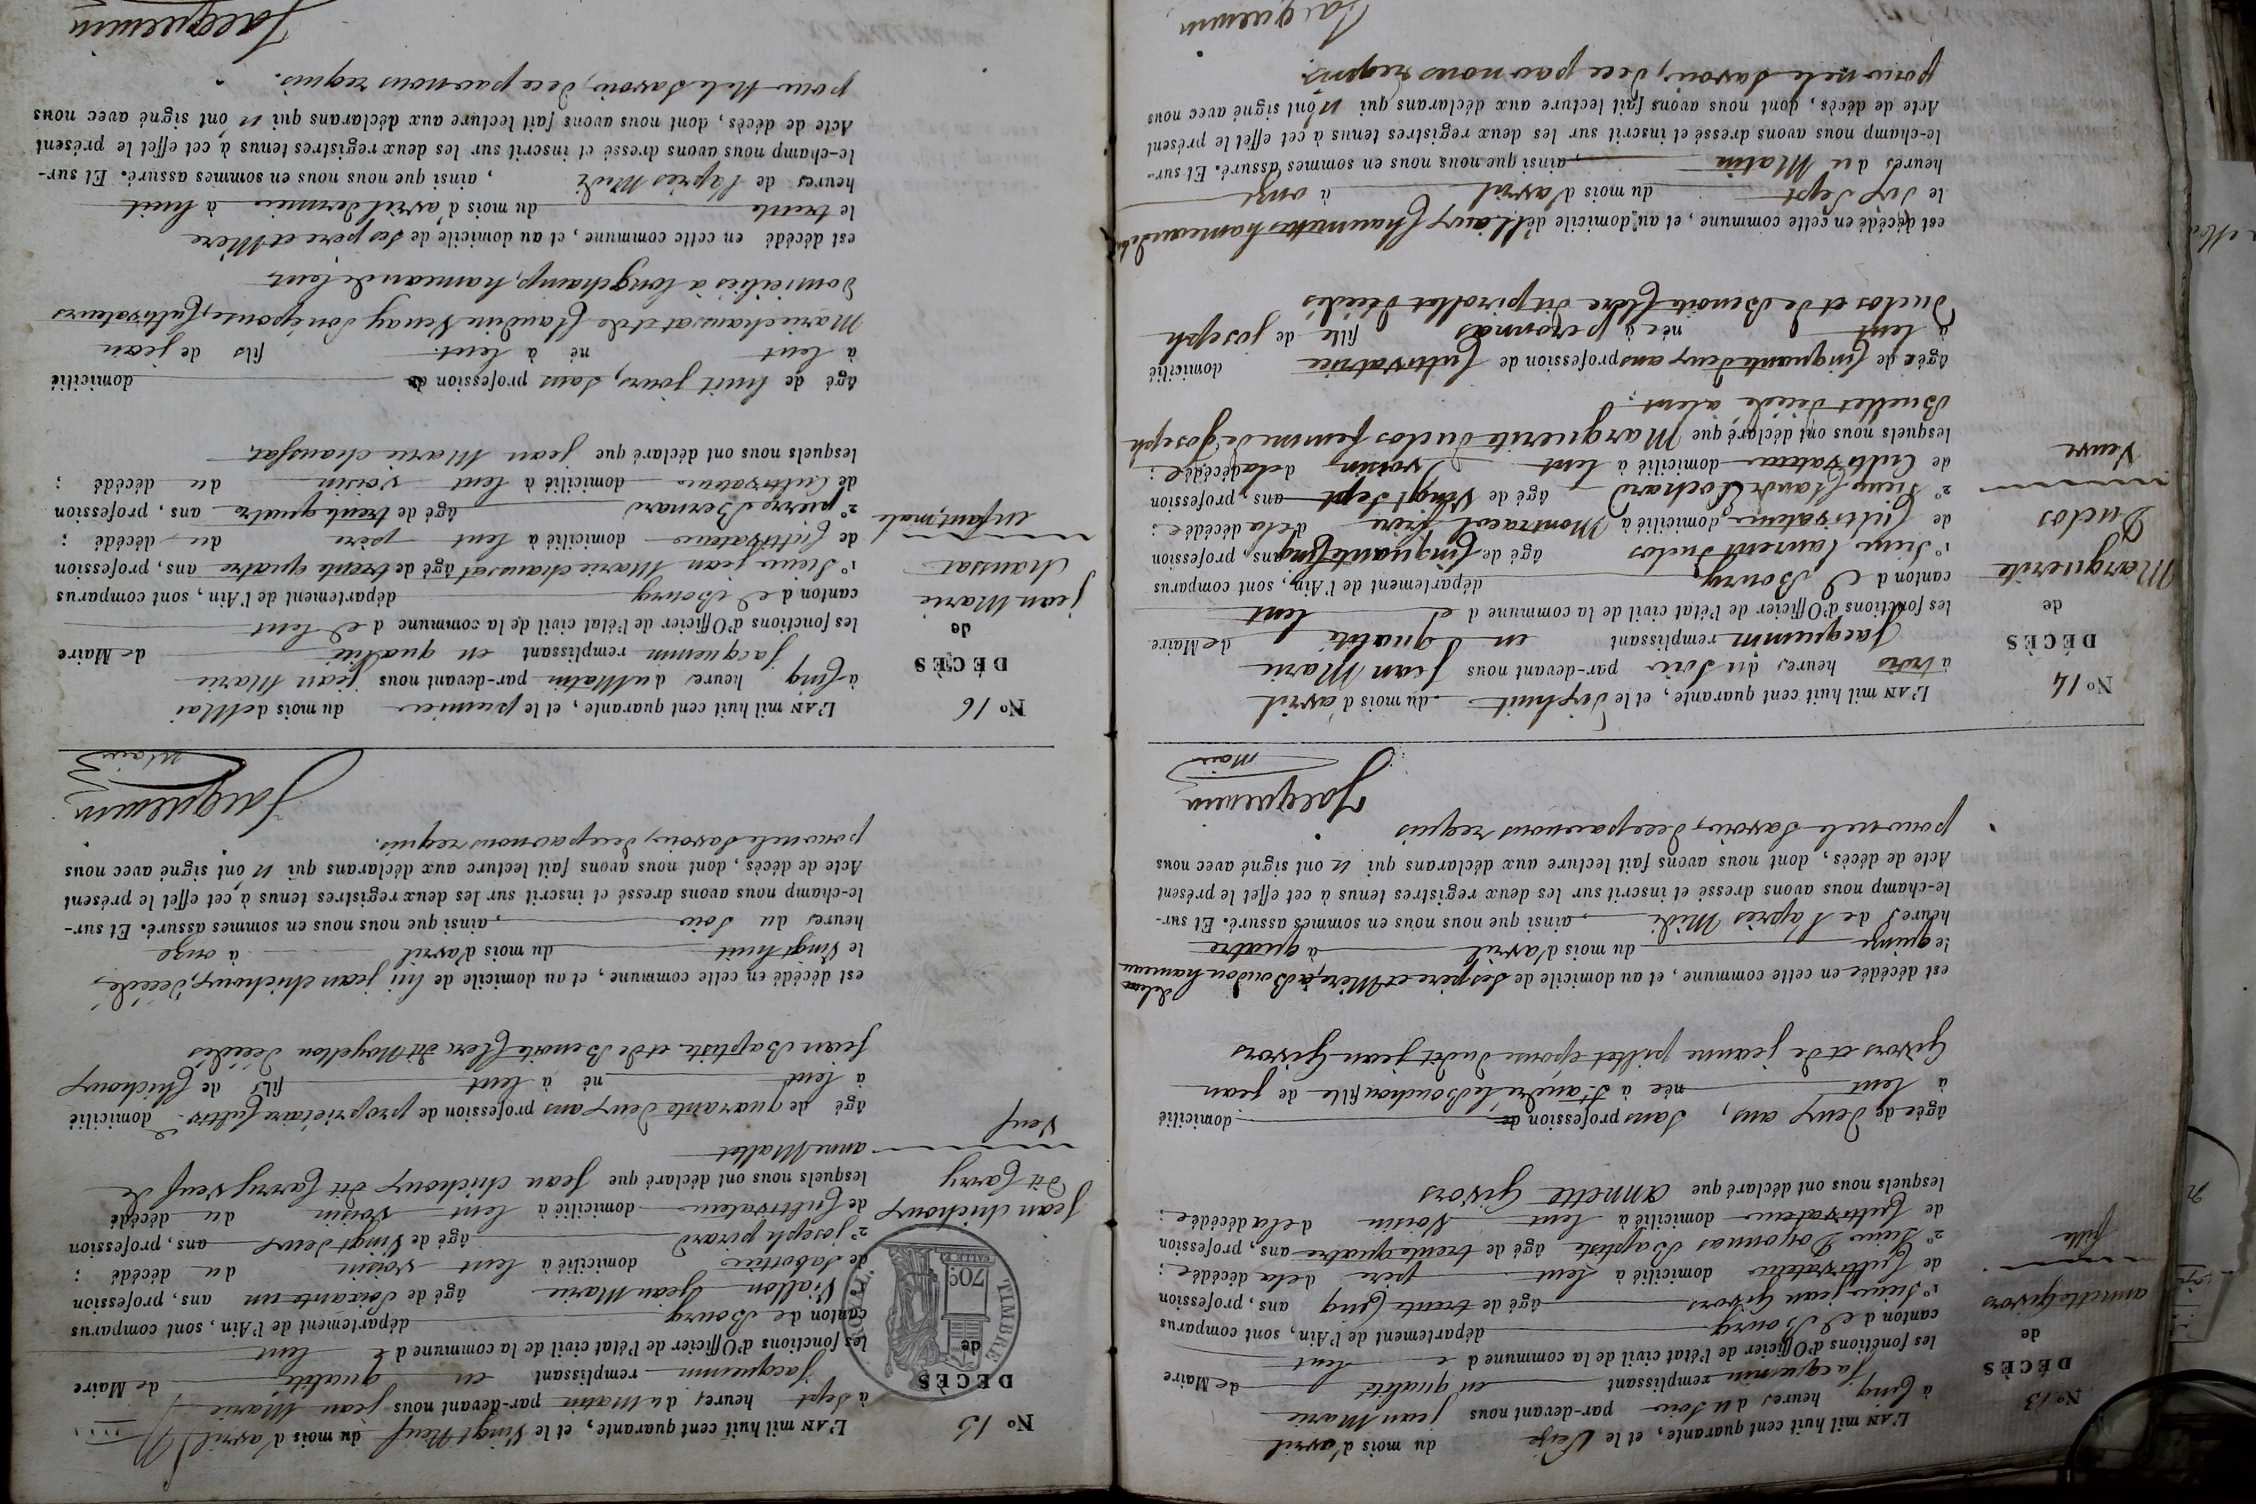 N° 13
DÉCÈS
de
annette Givors
fille
L'AN mil huit cent quarante, et le Seize du mois d'avril
à Cinq heures du Soir par-devant nous jean Marie
Jacquemin remplissant en qualité de Maire
les fonctions d'Officier de l'état civil de la commune de lent
canton de Bourg département de l'Ain, sont comparus
1° Sieur jean Givors âgé de trente Cinq ans, profession
de Cultivateur domicilié à lent père de la décédée ;
2° Sieur Baptiste âgé de trente quatre ans, profession
de Cultivateur domicilié à lent Voisin de la décédée ;
lesquels nous ont déclaré que annette Givors
âgée de Deux ans, Sans profession de domicilié
à lent née à St andré le Bouchou fille de jean
Givors et de jeanne pillet épouse dudit jean Givors
est décédée en cette commune, et au domicile de Ses père et Mère, à Boudou hameau de lent
le quinze du mois d'avril à quatre
heures de l'après Midi, ainsi que nous nous en sommes assuré. Et sur-
le-champ nous avons dressé et inscrit sur les deux registres tenus à cet effet le présent
Acte de décès, dont nous avons fait lecture aux déclarans qui n'ont signé avec nous
pour ne le Savoir, de ce par nous requis
Jacquemin
Maire
N° 14
DÉCÈS
de
Marguerite
Duclos
Veuve
L'AN mil huit cent quarante, et le Dix huit du mois d'avril
à trois heures du Soir par-devant nous Jean Marie
Jacquemin remplissant en qualité de Maire
les fonctions d'Officier de l'état civil de la commune de lent
canton de Bourg département de l'Ain, sont comparus
1° Sieur laurent Duclos âgé de Cinquante Cinq ans, profession
de Cultivateur domicilié à Montracol frère de la décédée ;
2° Sieur Claude Cochard âgé de Vingt Sept ans, profession
de Cultivateur domicilié à lent Voisin de la décédée ;
lesquels nous ont déclaré que Marguerite Duclos femme de Joseph
Buellet décédé à lent ;
âgée de Cinquante deux ans profession de Cultivatrice domicilié
à lent née à peronnas fille de joseph
Duclos et de Benoite Clere dit pirollat décédés
est décédée en cette commune, et au domicile d'elle aux Chaumettes hameau de lent
le Dix Sept du mois d'avril à onze
heures du Matin, ainsi que nous nous en sommes assuré. Et sur-
le-champ nous avons dressé et inscrit sur les deux registres tenus à cet effet le présent
Acte de décès, dont nous avons fait lecture aux déclarans qui n'ont signé avec nous
pour ne le Savoir, de ce par nous requis.
Jacquemin
N° 15
DÉCÈS
de
Jean chichoux
dit Carry
Veuf
TIMBRE
70c
L'AN mil huit cent quarante, et le Vingt Neuf du mois d'avril
à Sept heures du Matin par-devant nous jean Marie
Jacquemin remplissant en qualité de Maire
les fonctions d'Officier de l'état civil de la commune de lent
canton de Bourg département de l'Ain, sont comparus
Viallon Jean Marie âgé de Soixante un ans, profession
de Sabottier domicilié à lent voisin du décédé ;
2° joseph pirard âgé de Vingt deux ans, profession
de Cultivateur domicilié à lent Voisin du décédé
lesquels nous ont déclaré que Jean chichoux dit Carry veuf de
anne Mallet
âgé de quarante Deux ans profession de propriétaire Cultiv. domicilié
à lent né à lent fils de Chichoux
Jean Baptiste et de Benoite Clere dit Moyellon décédés
est décédé en cette commune, et au domicile de lui jean chichoux, décédé,
le Vingt huit du mois d'avril à onze
heures du Soir, ainsi que nous nous en sommes assuré. Et sur-
le-champ nous avons dressé et inscrit sur les deux registres tenus à cet effet le présent
Acte de décès, dont nous avons fait lecture aux déclarans qui n'ont signé avec nous
pour ne le Savoir, de ce par nous requis.
Jacquemin
Maire
N° 16
DÉCÈS
de
jean Marie
chaussat
enfant, male
L'AN mil huit cent quarante, et le premier du mois de Mai
à Cinq heures du Matin par-devant nous jean Marie
jacquemin remplissant en qualité de Maire
les fonctions d'Officier de l'état civil de la commune de lent
canton de Bourg département de l'Ain, sont comparus
1° Sieur jean Marie chaussat âgé de trente quatre ans, profession
de Cultivateur domicilié à lent père du décédé ;
2° pierre Bernard âgé de trente quatre ans, profession
de Cultivateur domicilié à lent voisin du décédé ;
lesquels nous ont déclaré que jean Marie chaussat,
âgé de huit jours, Sans profession de domicilié
à lent né à lent fils de jean
Marie chaussat et de Claudine Venay Son épouse, Cultivateurs
domiciliés à longchamp, hameau de lent
est décédé en cette commune, et au domicile de Ses père et Mère
le trente du mois d'avril dernier à huit
heures de l'après Midi, ainsi que nous nous en sommes assuré. Et sur-
le-champ nous avons dressé et inscrit sur les deux registres tenus à cet effet le présent
Acte de décès, dont nous avons fait lecture aux déclarans qui n'ont signé avec nous
pour Ne le Savoir, de ce par nous requis.
Jacquemin